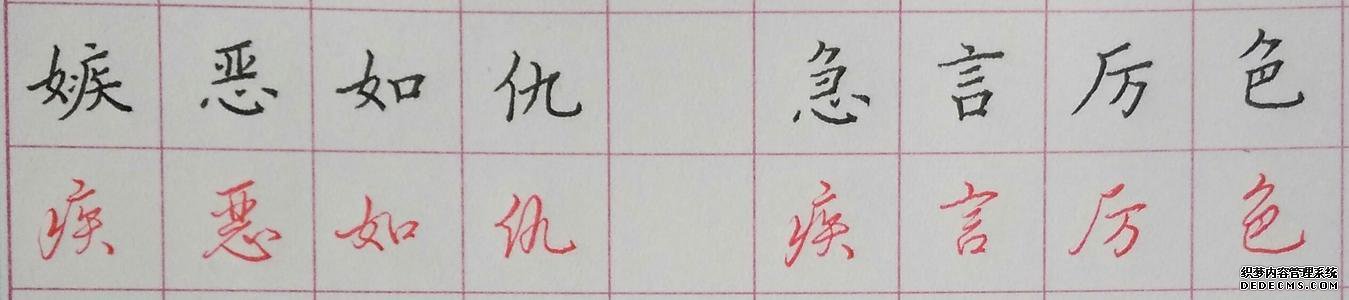 嫉恶如仇 急言厉色
疾恶如仇 疾言厉色
织梦内容管理系统
DEDECMS.COM